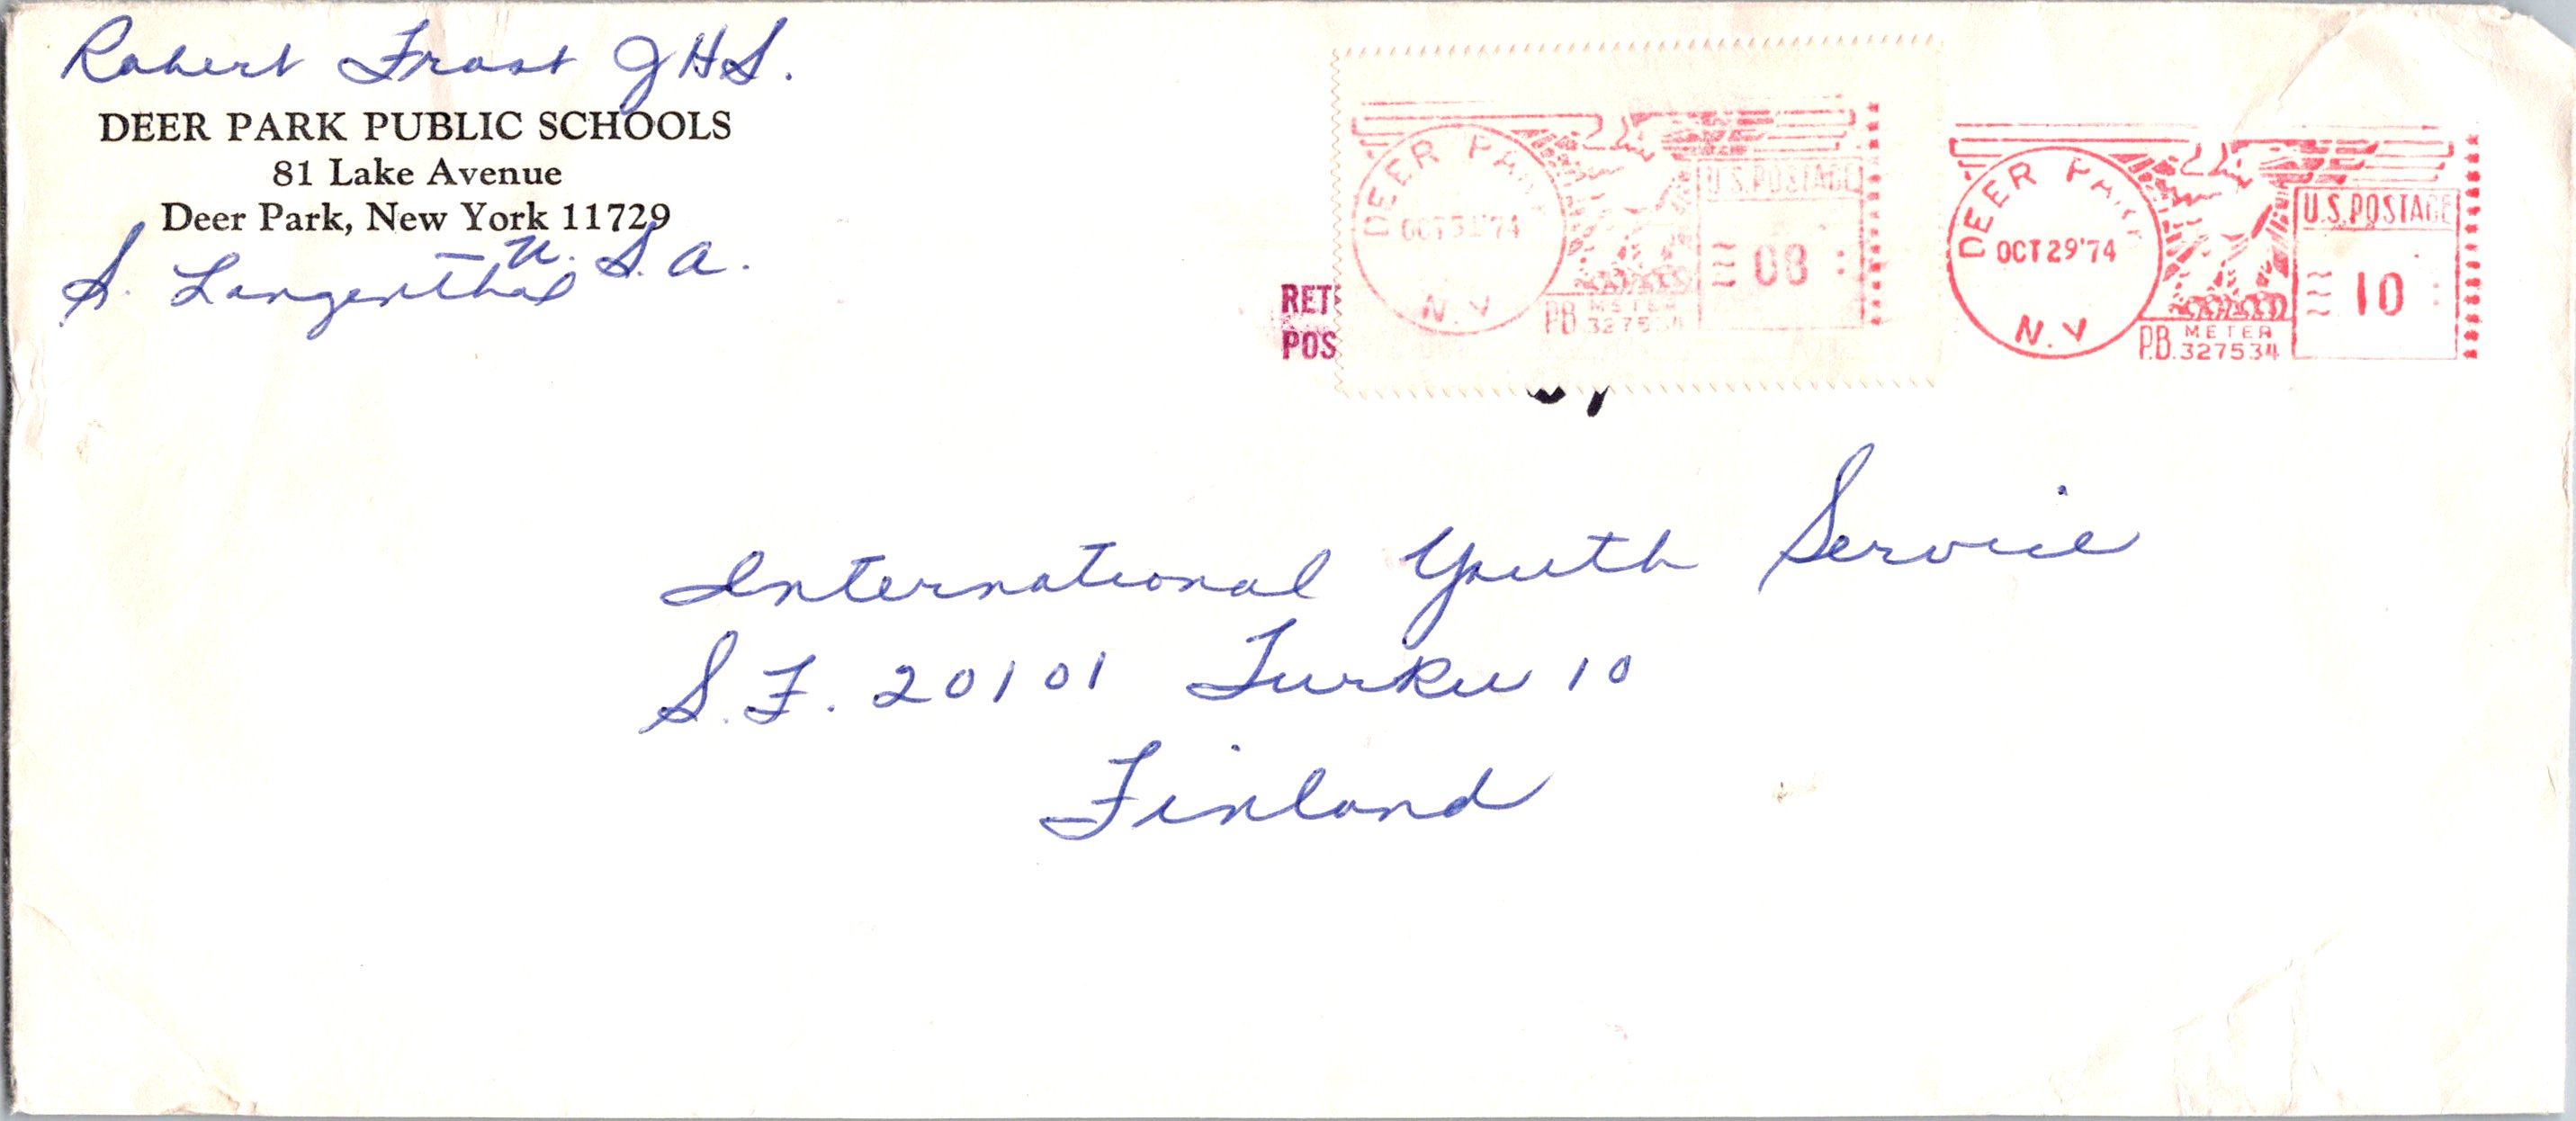 Robert Frost JHS.
DEER PARK PUBLIC SCHOOLS
81 Lake Avenue
Deer Park, New York 11729
U.S.A.
S. Langenthal
RET
POS
DEER PARK
OCT31'74
N.Y
U.S.POSTAGE
08
P.B. METER
327534
DEER PARK
OCT29'74
N.Y
U.S.POSTAGE
10
P.B. METER
327534
International Youth Service
S.F. 20101 Turku 10
Finland